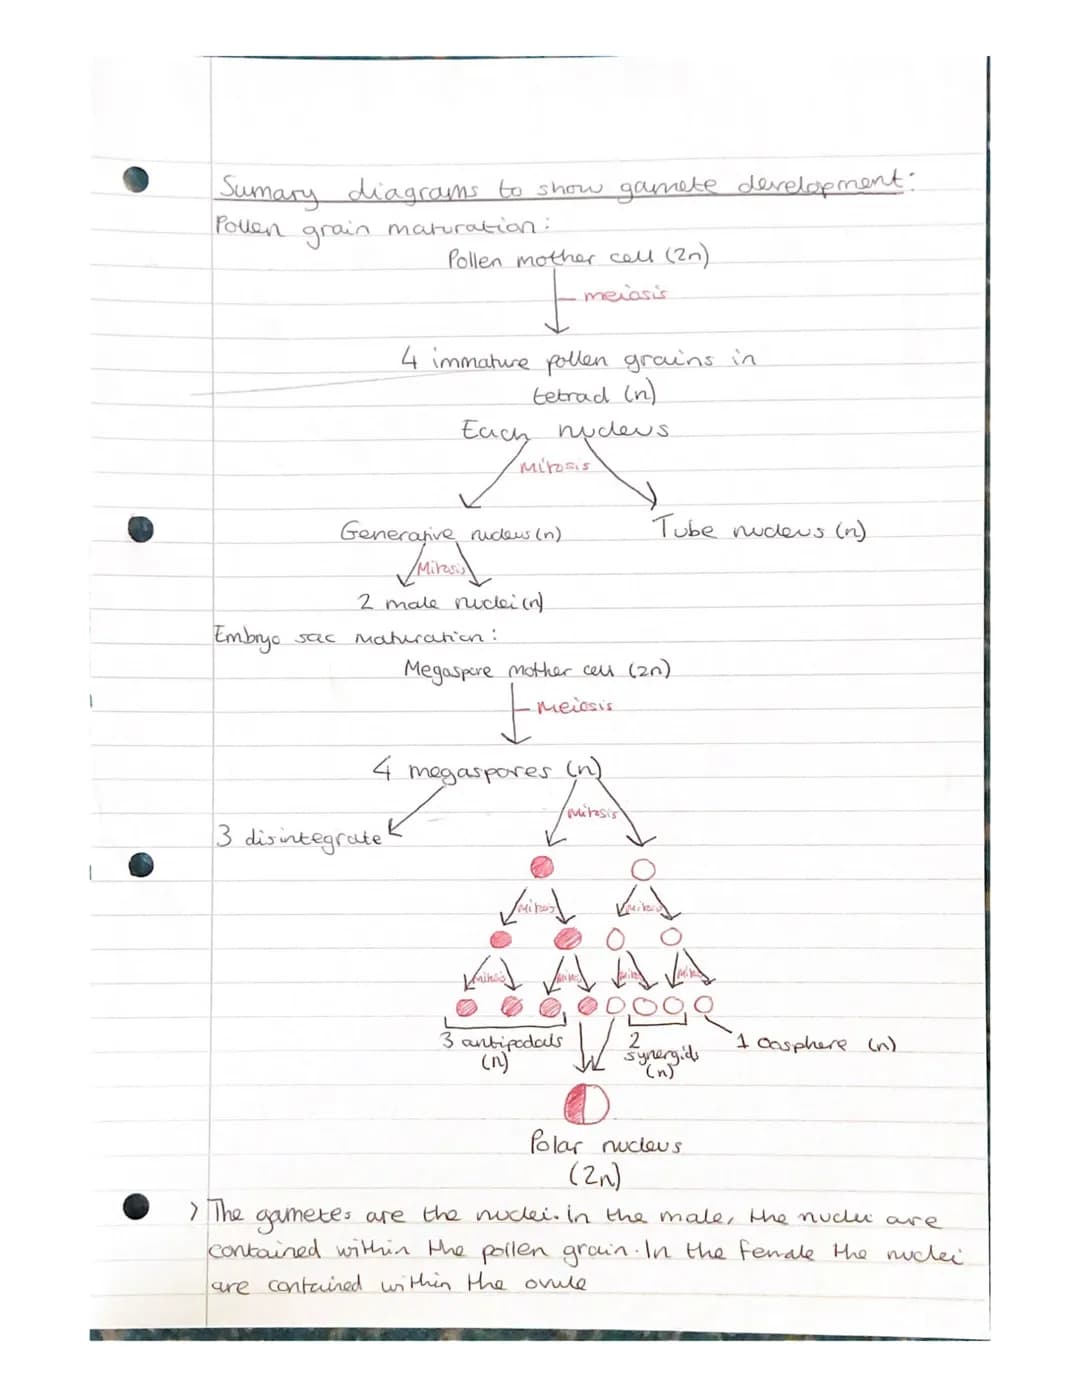 Sumary diagrams to show gamete development:
Pollen grain maturation:
Pollen mother cell (2n)
meiosis
4 immature pollen grains in
tetrad (n)
Each nucleus
Mitosis
Generative nucleus (n)
Tube nucleus (n)
Mitosis
2 male nuclei (n)
Embryo sac maturation:
Megaspore mother cell (2n)
meiosis
4 megaspores (n)
mitosis
3 disintegrate
mitosis mitosis
mitosis mitosis mitosis mitosis
3 antipodals
(n)
2
synergids
(n)
1 oosphere (n)
Polar nucleus
(2n)
> The gametes are the nuclei. In the male, the nuclei are
contained within the pollen grain. In the female the nuclei
are contained within the ovule